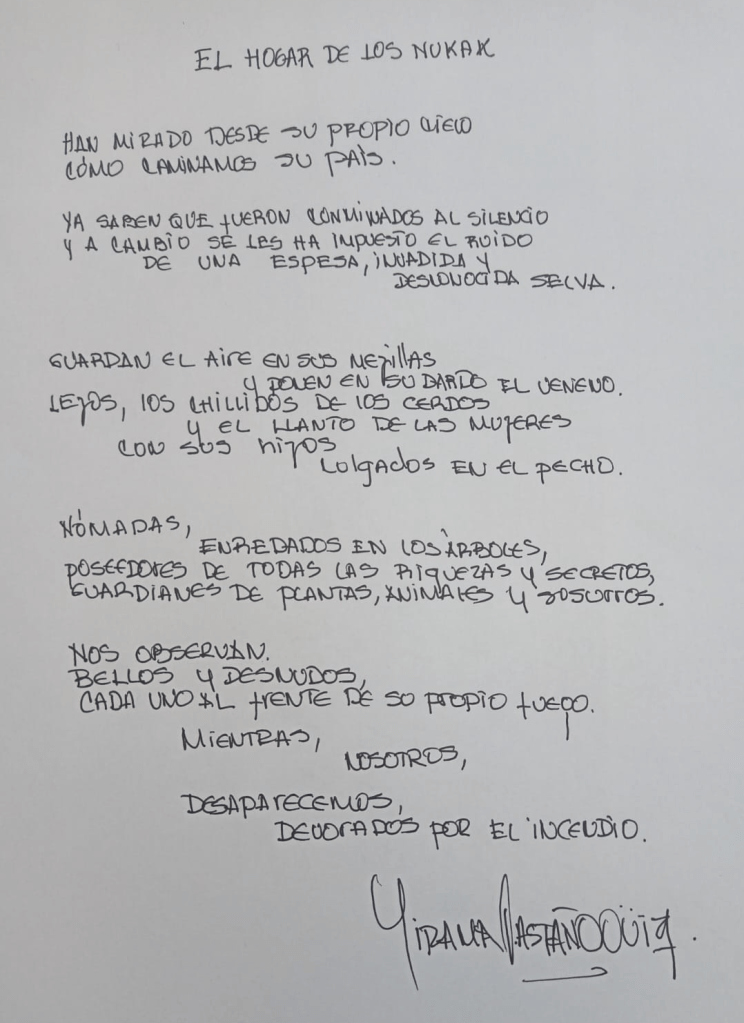 EL HOGAR DE LOS NUKAK
HAN MIRADO DESDE SU PROPIO CIELO
CÓMO CAMINAMOS SU PAÍS.
YA SABEN QUE FUERON CONMINADOS AL SILENCIO
Y A CAMBIO SE LES HA IMPUESTO EL RUIDO
DE UNA ESPESA, INVADIDA Y
DESCONOCIDA SELVA.
GUARDAN EL AIRE EN SUS MEJILLAS
Y PONEN EN SU DARDO EL VENENO.
LEJOS, LOS CHILLIDOS DE LOS CERDOS
Y EL LLANTO DE LAS MUJERES
CON SUS HIJOS
COLGADOS EN EL PECHO.
NÓMADAS,
ENREDADOS EN LOS ÁRBOLES,
POSEEDORES DE TODAS LAS RIQUEZAS Y SECRETOS,
GUARDIANES DE PLANTAS, ANIMALES Y SUSURROS.
NOS OBSERVAN.
BELLOS Y DESNUDOS,
CADA UNO AL FRENTE DE SU PROPIO FUEGO.
MIENTRAS,
NOSOTROS,
DESAPARECEMOS,
DEVORADOS POR EL INCENDIO.